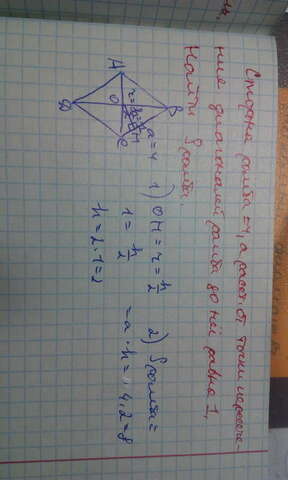 Сторона ромба = 4, а расст. от точки пересече-
ния диагоналей ромба до неё равна 1,
Найти Sромба.
A
B
C
D
O
M
a = 4
r = h/2
1) OM = r = h/2
1 = h/2
h = 2 · 1 = 2
2) Sромба =
= a · h = 4 · 2 = 8